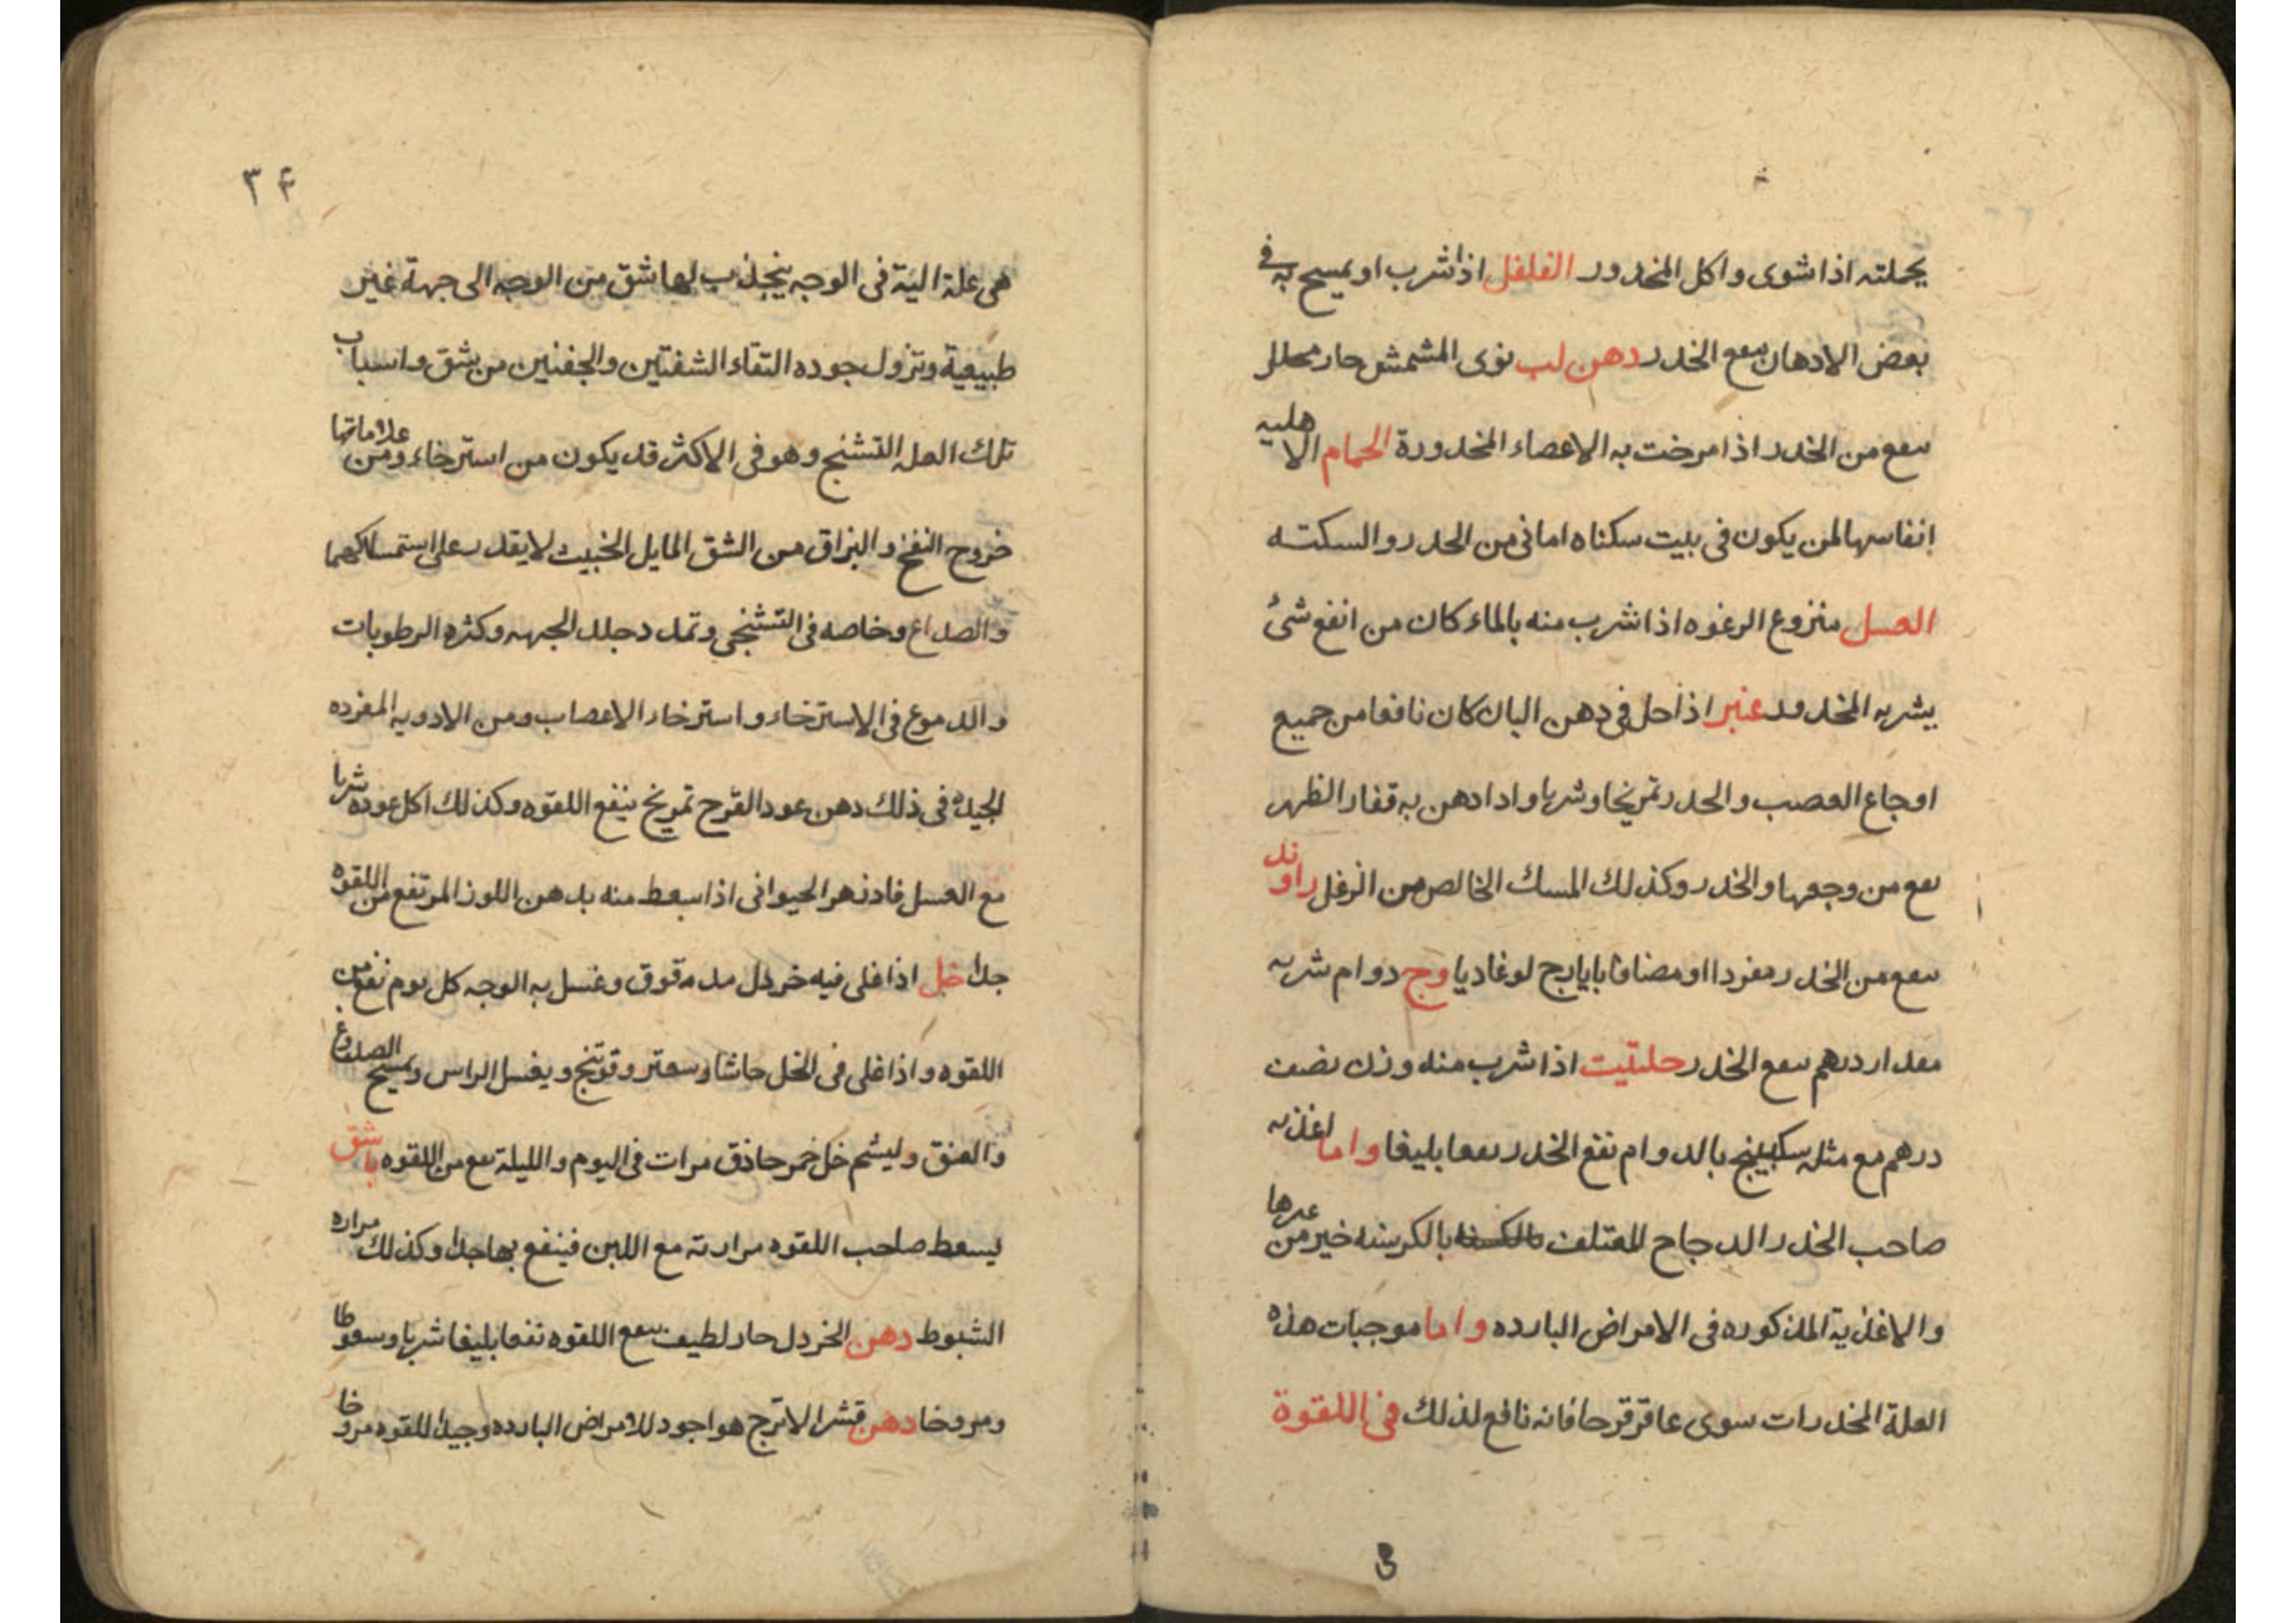 بجملته اذا شوى واكل المخدور الفلفل اذا شرب او يمسح به فى
بعض الادهان ينفع الخدر دهن لب نوى المشمش حار محلل
ينفع من الخدر اذا مرخت به الاعضاء المخدورة الحمام الاهليه
انفاسها لمن يكون فى بيت سكناه امانى من الخدر والسكته
العسل منزوع الرغوه اذا شرب منه بالماء كان من انفع شئ
يشربه المخدور عنبر اذا حل فى دهن البان كان نافعا من جميع
اوجاع العصب والخدر تمريخا وشربا واذا دهن به قفار الظهر
نفع من وجعها والخدر وكذلك المسك الخالص من الزغل راوند
ينفع من الخدر مفردا او مضافا بايارج لوغاديا وج دوام شربه
مقدار درهم ينفع الخدر حلتيت اذا شرب منه وزن نصف
درهم مع مثله سكبينج بالدوام نفع الخدر نفعا بليغا واما اغذيه
صاحب الخدر الدجاج المعتلف بالكرسنه خير من غيرها
والاغذية المذكوره فى الامراض البارده واما موجبات هذه
العلة المخدرات سوى عاقرقرحا فانه نافع لذلك فى اللقوة
۳۴
هى علة الية فى الوجه ينجذب لها شق من الوجه الى جهة غير
طبيعية وتزول جوده التقاء الشفتين والجفنين من شق واسباب
تلك العله التشنج وهو فى الاكثر قد يكون من استرخاء ومن علاماتها
خروج النفخ والبزاق من الشق المايل الخبيث لا يقدر على استمساكهما
والصداع وخاصه فى التشنجى وتمدد جلد الجبهه وكثره الرطوبات
والدموع فى الاسترخاء واسترخاء الاعصاب ومن الادويه المفرده
الجيده فى ذلك دهن عود القرح تمريخ ينفع اللقوه وكذلك اكل عوده شربا
مع العسل فادزهر الحيوانى اذا سعط منه بدهن اللوز المر نفع من اللقوه
جدا خل اذا غلى فيه خردل مدقوق وغسل به الوجه كل يوم نفع من
اللقوه واذا غلى فى الخل حاشا وسعتر وفوتنج ويغسل الراس ويمسح الصدوغ
والعنق وليشم خل خمر حاذق مرات فى اليوم والليلة نفع من اللقوه باشق
يسعط صاحب اللقوه مرارته مع اللبن فينفع بها جدا وكذلك مراره
الشبوط دهن الخردل حار لطيف ينفع اللقوه نفعا بليغا شربا وسعوطا
ومروخا دهن قشر الاترج هو اجود للامراض البارده وجيد اللقوه مروخا